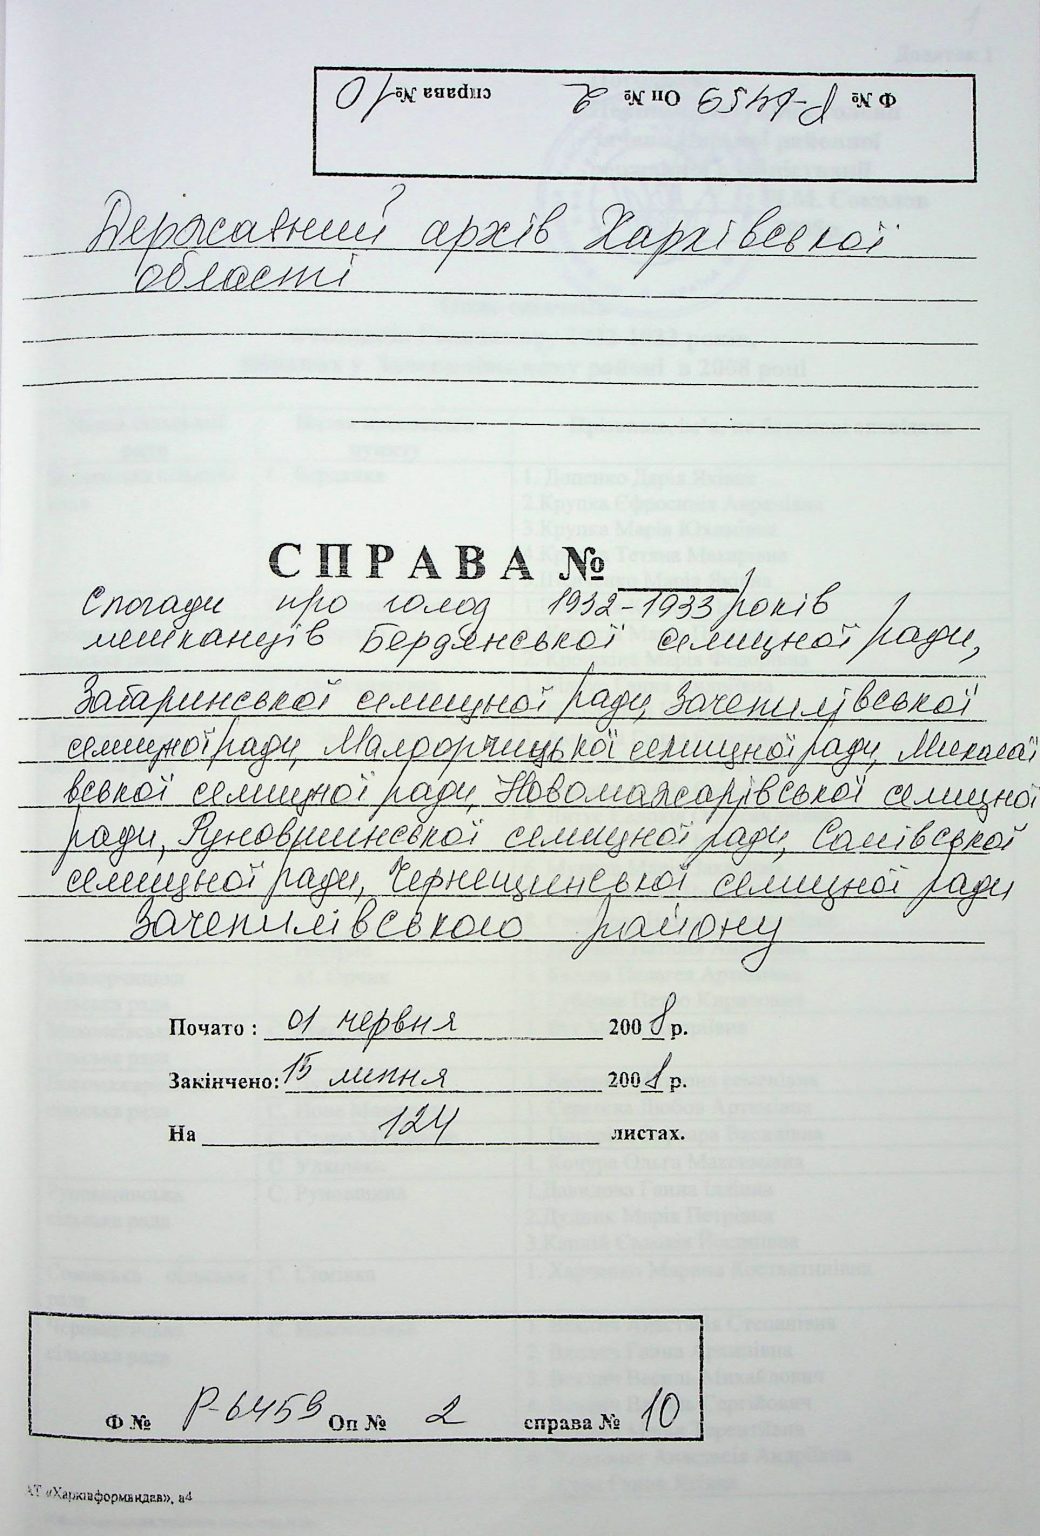 Ф № Р-6459 Оп № 2 справа № 10
Державний архів Харківської
області
СПРАВА №
Спогади про голод 1932-1933 років
мешканців Бердянської селищної ради,
селищної ради, Зачепилівської
селищної ради, Малоорчицької селищної ради, Миколаї
вської селищної ради, Новомажарівської селищної
ради, Руновщинської селищної ради, Сомівської
селищної ради, Чернещинської селищної ради
Зачепилівського району
Почато : 01 червня 2008 р.
Закінчено: 15 липня 2008 р.
На 124 листах.
Ф № Р-6459 Оп № 2 справа № 10
АТ «Харківформвидав», а4